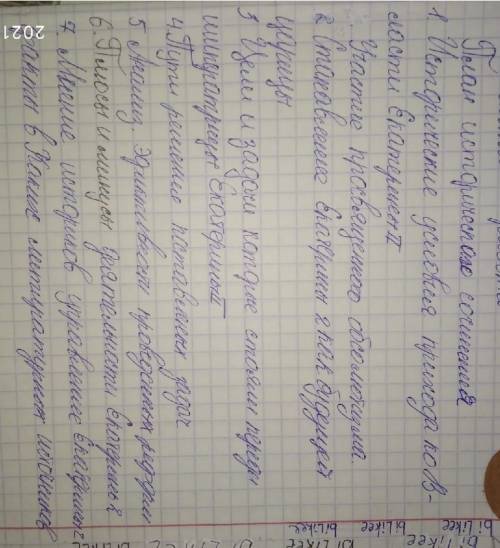 План исторического сочинения
1. Исторические условия прихода по в-
сласти Екатерине II
Участие просвященного обсолютизма
2 Становление Екатерины 2 как будущей
царицы
3 Цели и задачи которые стояли перед
императрицы Екатериной II
4. Пути решение поставленых задач
5 Анализ. эфективности проводимых реформ
6. Плюсы и минусы деятельности Екатерины 2
7. Мнение историков управление Екатерины 2
факты в
литературных источников
2021
bilikee bilikee bilikee bilikee